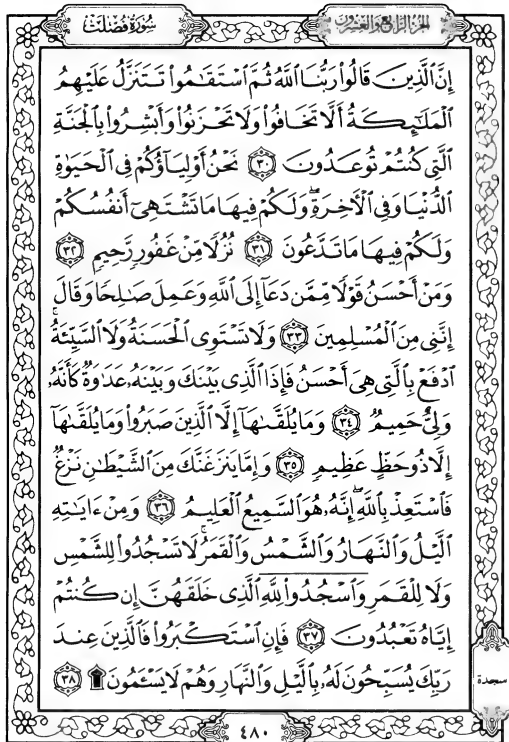 سُورَةُ فُصِّلَتْ
الجُزءُ الرَّابِعُ وَالعِشْرُونَ
إِنَّ ٱلَّذِينَ قَالُوا۟ رَبُّنَا ٱللَّهُ ثُمَّ ٱسْتَقَٰمُوا۟ تَتَنَزَّلُ عَلَيْهِمُ
ٱلْمَلَٰٓئِكَةُ أَلَّا تَخَافُوا۟ وَلَا تَحْزَنُوا۟ وَأَبْشِرُوا۟ بِٱلْجَنَّةِ
ٱلَّتِى كُنتُمْ تُوعَدُونَ ٣٠ نَحْنُ أَوْلِيَآؤُكُمْ فِى ٱلْحَيَوٰةِ
ٱلدُّنْيَا وَفِى ٱلْءَاخِرَةِ ۖ وَلَكُمْ فِيهَا مَا تَشْتَهِىٓ أَنفُسُكُمْ
وَلَكُمْ فِيهَا مَا تَدَّعُونَ ٣١ نُزُلًا مِّنْ غَفُورٍ رَّحِيمٍ ٣٢
وَمَنْ أَحْسَنُ قَوْلًا مِّمَّن دَعَآ إِلَى ٱللَّهِ وَعَمِلَ صَٰلِحًا وَقَالَ
إِنَّنِى مِنَ ٱلْمُسْلِمِينَ ٣٣ وَلَا تَسْتَوِى ٱلْحَسَنَةُ وَلَا ٱلسَّيِّئَةُ ۚ
ٱدْفَعْ بِٱلَّتِى هِىَ أَحْسَنُ فَإِذَا ٱلَّذِى بَيْنَكَ وَبَيْنَهُۥ عَدَٰوَةٌ كَأَنَّهُۥ
وَلِىٌّ حَمِيمٌ ٣٤ وَمَا يُلَقَّىٰهَآ إِلَّا ٱلَّذِينَ صَبَرُوا۟ وَمَا يُلَقَّىٰهَآ
إِلَّا ذُو حَظٍّ عَظِيمٍ ٣٥ وَإِمَّا يَنزَغَنَّكَ مِنَ ٱلشَّيْطَٰنِ نَزْغٌ
فَٱسْتَعِذْ بِٱللَّهِ ۖ إِنَّهُۥ هُوَ ٱلسَّمِيعُ ٱلْعَلِيمُ ٣٦ وَمِنْ ءَايَٰتِهِ
ٱلَّيْلُ وَٱلنَّهَارُ وَٱلشَّمْسُ وَٱلْقَمَرُ ۚ لَا تَسْجُدُوا۟ لِلشَّمْسِ
وَلَا لِلْقَمَرِ وَٱسْجُدُوا۟ لِلَّهِ ٱلَّذِى خَلَقَهُنَّ إِن كُنتُمْ
إِيَّاهُ تَعْبُدُونَ ٣٧ فَإِنِ ٱسْتَكْبَرُوا۟ فَٱلَّذِينَ عِندَ
رَبِّكَ يُسَبِّحُونَ لَهُۥ بِٱلَّيْلِ وَٱلنَّهَارِ وَهُمْ لَا يَسْـَٔمُونَ ۩ ٣٨
سجدة
٤٨٠